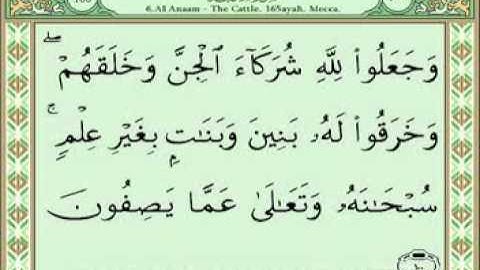 6.Al Anaam - The Cattle. 165ayah. Mecca.
وَجَعَلُوا۟ لِلَّهِ شُرَكَآءَ ٱلْجِنَّ وَخَلَقَهُمْ ۖ
وَخَرَقُوا۟ لَهُۥ بَنِينَ وَبَنَٰتٍۭ بِغَيْرِ عِلْمٍ ۚ
سُبْحَٰنَهُۥ وَتَعَٰلَىٰ عَمَّا يَصِفُونَ